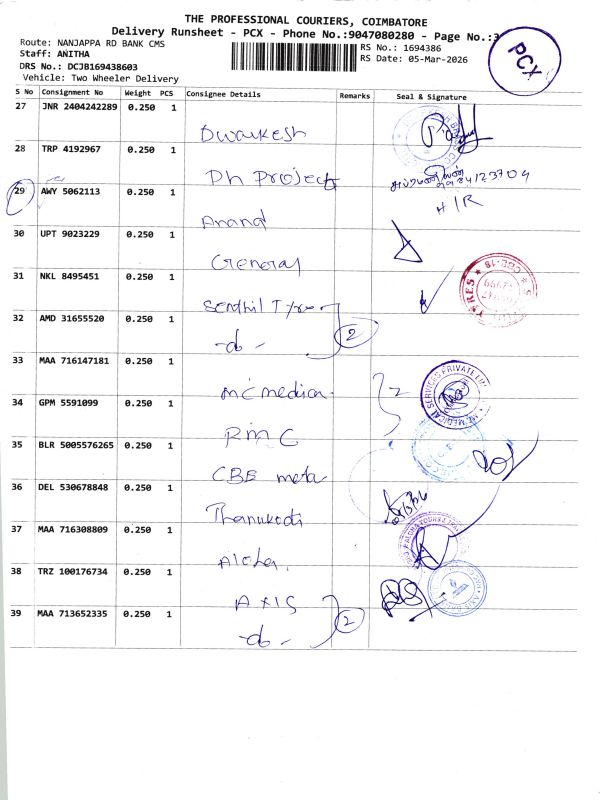 THE PROFESSIONAL COURIERS, COIMBATORE
Delivery Runsheet - PCX - Phone No.:9047080280 - Page No.:3
Route: NANJAPPA RD BANK CMS
Staff: ANITHA
DRS No.: DCJB169438603
Vehicle: Two Wheeler Delivery
RS No.: 1694386
RS Date: 05-Mar-2026
PCX
S No Consignment No Weight PCS Consignee Details Remarks Seal & Signature
27 JNR 2404242289 0.250 1
Dwarkesh
28 TRP 4192967 0.250 1
Ph project
9984123704
29 AWY 5062113 0.250 1
H/R
Anand
30 UPT 9023229 0.250 1
General
31 NKL 8495451 0.250 1
Senthil Tyre
32 AMD 31655520 0.250 1
-do-
2
33 MAA 716147181 0.250 1
mc medica
2
34 GPM 5591099 0.250 1
RMC
35 BLR 5005576265 0.250 1
CBE meta
36 DEL 530678848 0.250 1
Thanukodi
37 MAA 716308809 0.250 1
Aloha
38 TRZ 100176734 0.250 1
AXIS
39 MAA 713652335 0.250 1
-do-
2